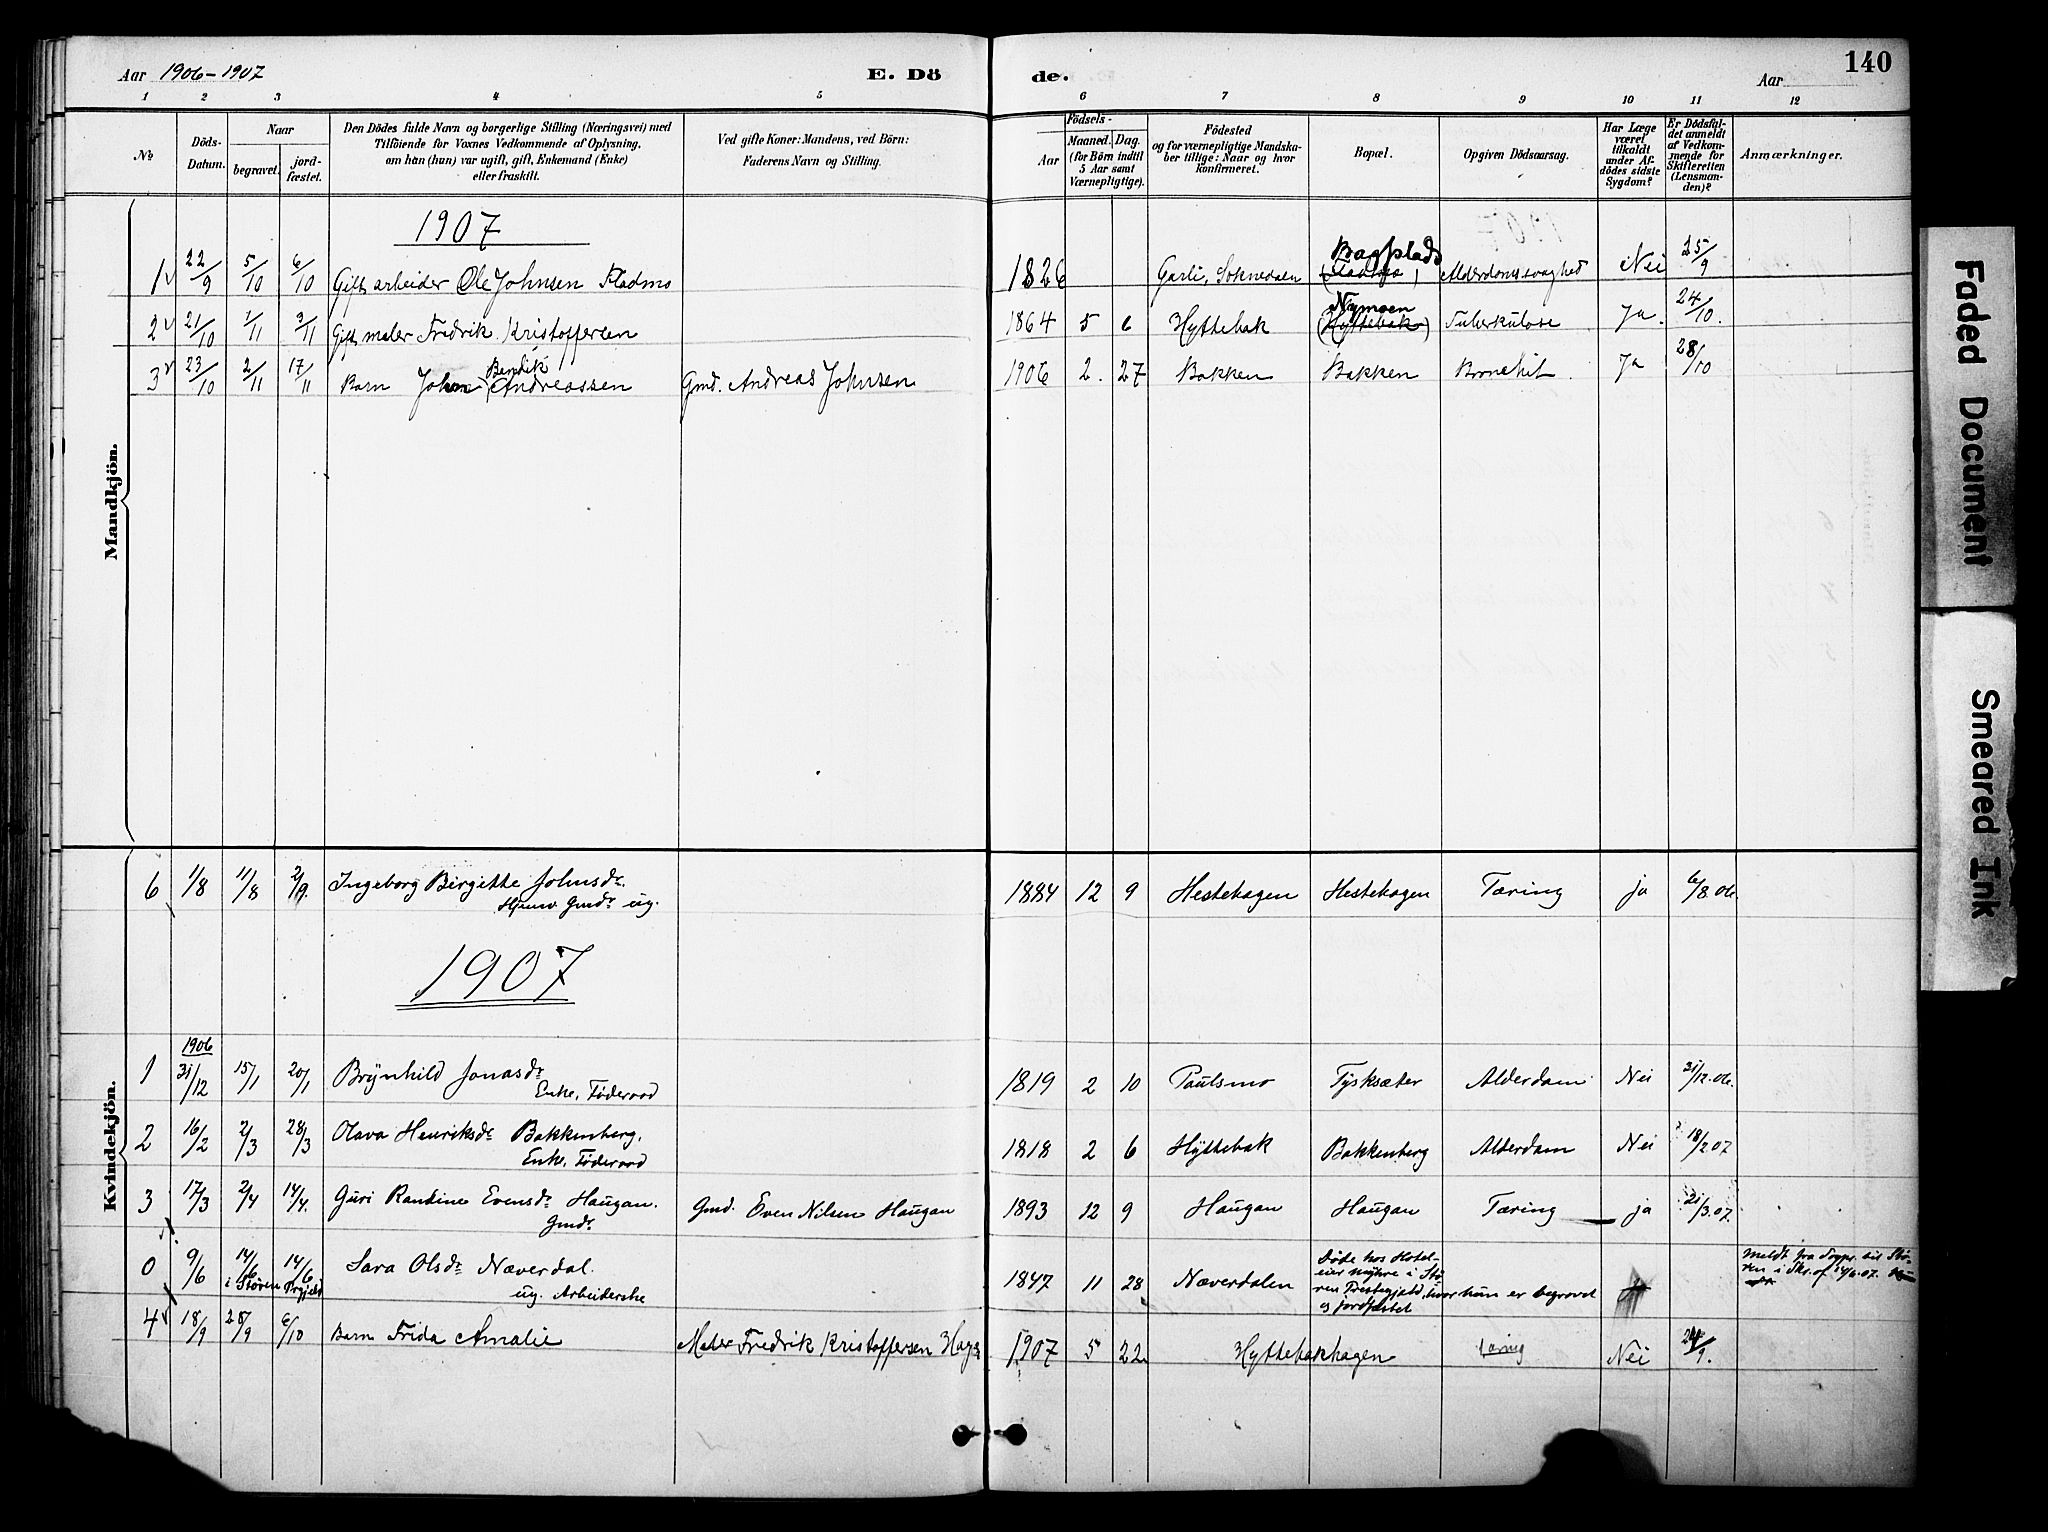 Aar 1906-1907 E. Dö de. Aar 140
1 2 3 4 5 6 7 8 9 10 11 12
No
Döds-Datum.
Naar
begravet.
jordfæstet.
Den Dödes fulde Navn og borgerlige Stilling (Næringsvei) med
Tilföiende for Voxnes Vedkommende af Oplysning,
om han (hun) var ugift, gift, Enkemand (Enke)
eller fraskilt.
Ved gifte Koner: Mandens, ved Börn:
Faderens Navn og Stilling.
Födsels-
Aar
Maaned. Dag.
(for Börn indtil
5 Aar samt
Værnepligtige).
Födested
og for værnepligtige Mandskaber tillige: Naar og hvor
konfirmeret.
Bopæl.
Opgiven Dödsaarsag.
Har Læge
været
tilkaldt
under Afdödes sidste
Sygdom?
Er Dödsfaldet anmeldt
af Vedkommende for
Skifteretten
(Lensmanden)?
Anmærkninger.
Mandkjön.
1907
Bagplads
1 22/9 5/10 6/10 Gift arbeider Ole Johnsen Fladmo 1826 Garli, Soknedalen (Fladmo) Alderdomssvaghed Nei 25/9
Nymoen
2 21/10 1/11 3/11 Gift maler Fredrik Kristoffersen 1864 5 6 Hyttebak (Hyttebak) Tuberkulose Ja. 24/10.
Bendik
3 23/10 2/11 17/11 Barn John Andreassen Gmd. Andreas Johnsen 1906 2. 27 Bakken Bakken Bronchit Ja 28/10
Kvindekjön.
6 1/8 11/8 2/9. Ingeborg Birgitte Johnsdr. 1884 12 9 Hestehagen Hestehagen Tæring ja 6/8.06.
Gmdr ug.
1907
1906
1 31/12 15/1 20/1 Brynhild Jonasdr 1819 2 10 Paulsmo Tysksæter Alderdom Nei 31/12.06.
Enke, Föderaad
2 16/2 2/3 28/3 Olava Henriksdr Bakkenberg. 1818 2 6 Hyttebak Bakkenberg Alderdom Nei 18/2 07
Enke, Föderaad
3 17/3 2/4 14/4. Guri Randine Evensdr Haugan. Gmd. Even Nilsen Haugan 1893 12 9 Haugan Haugan Tæring ja 21/3.07.
Gmdr
0 9/6 14/6 14/6 Sara Olsdr Næverdal. 1847 11 28 Næverdalen
i Støren Prgjeld
ug. Arbeiderske
Døde hos Hotel-
eier myhre i Stø
ren Prestegjeld, hvor hun er begravet
og jordfæstet
Meldt fra Sogpr. til Stø-
ren i Skr. af 14/6.07.
4 18/9 28/9 6/10 Barn Frida Amalie Maler Fredrik Kristoffersen 1907 5 22 Hyttebakhagen Tæring Nei 24/9.
Faded Document
Smeared Ink